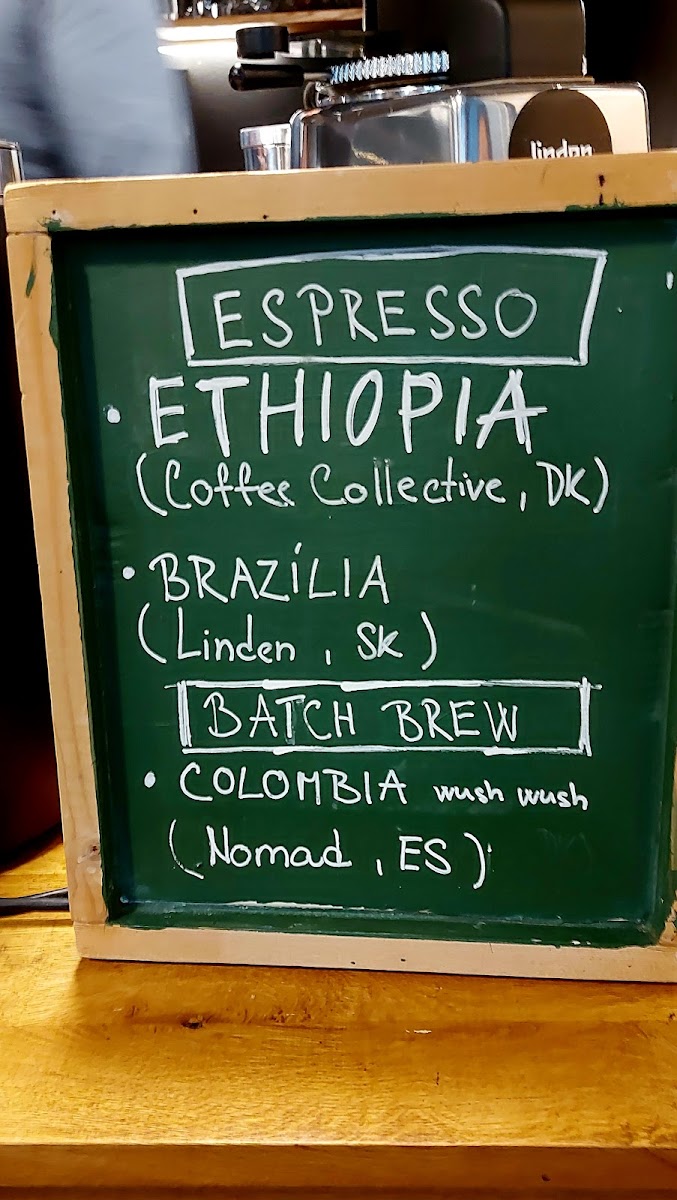 linden
ESPRESSO
• ETHIOPIA
(Coffee Collective, DK)
• BRAZÍLIA
(Linden, SK)
BATCH BREW
• COLOMBIA wush wush
(Nomad, ES)